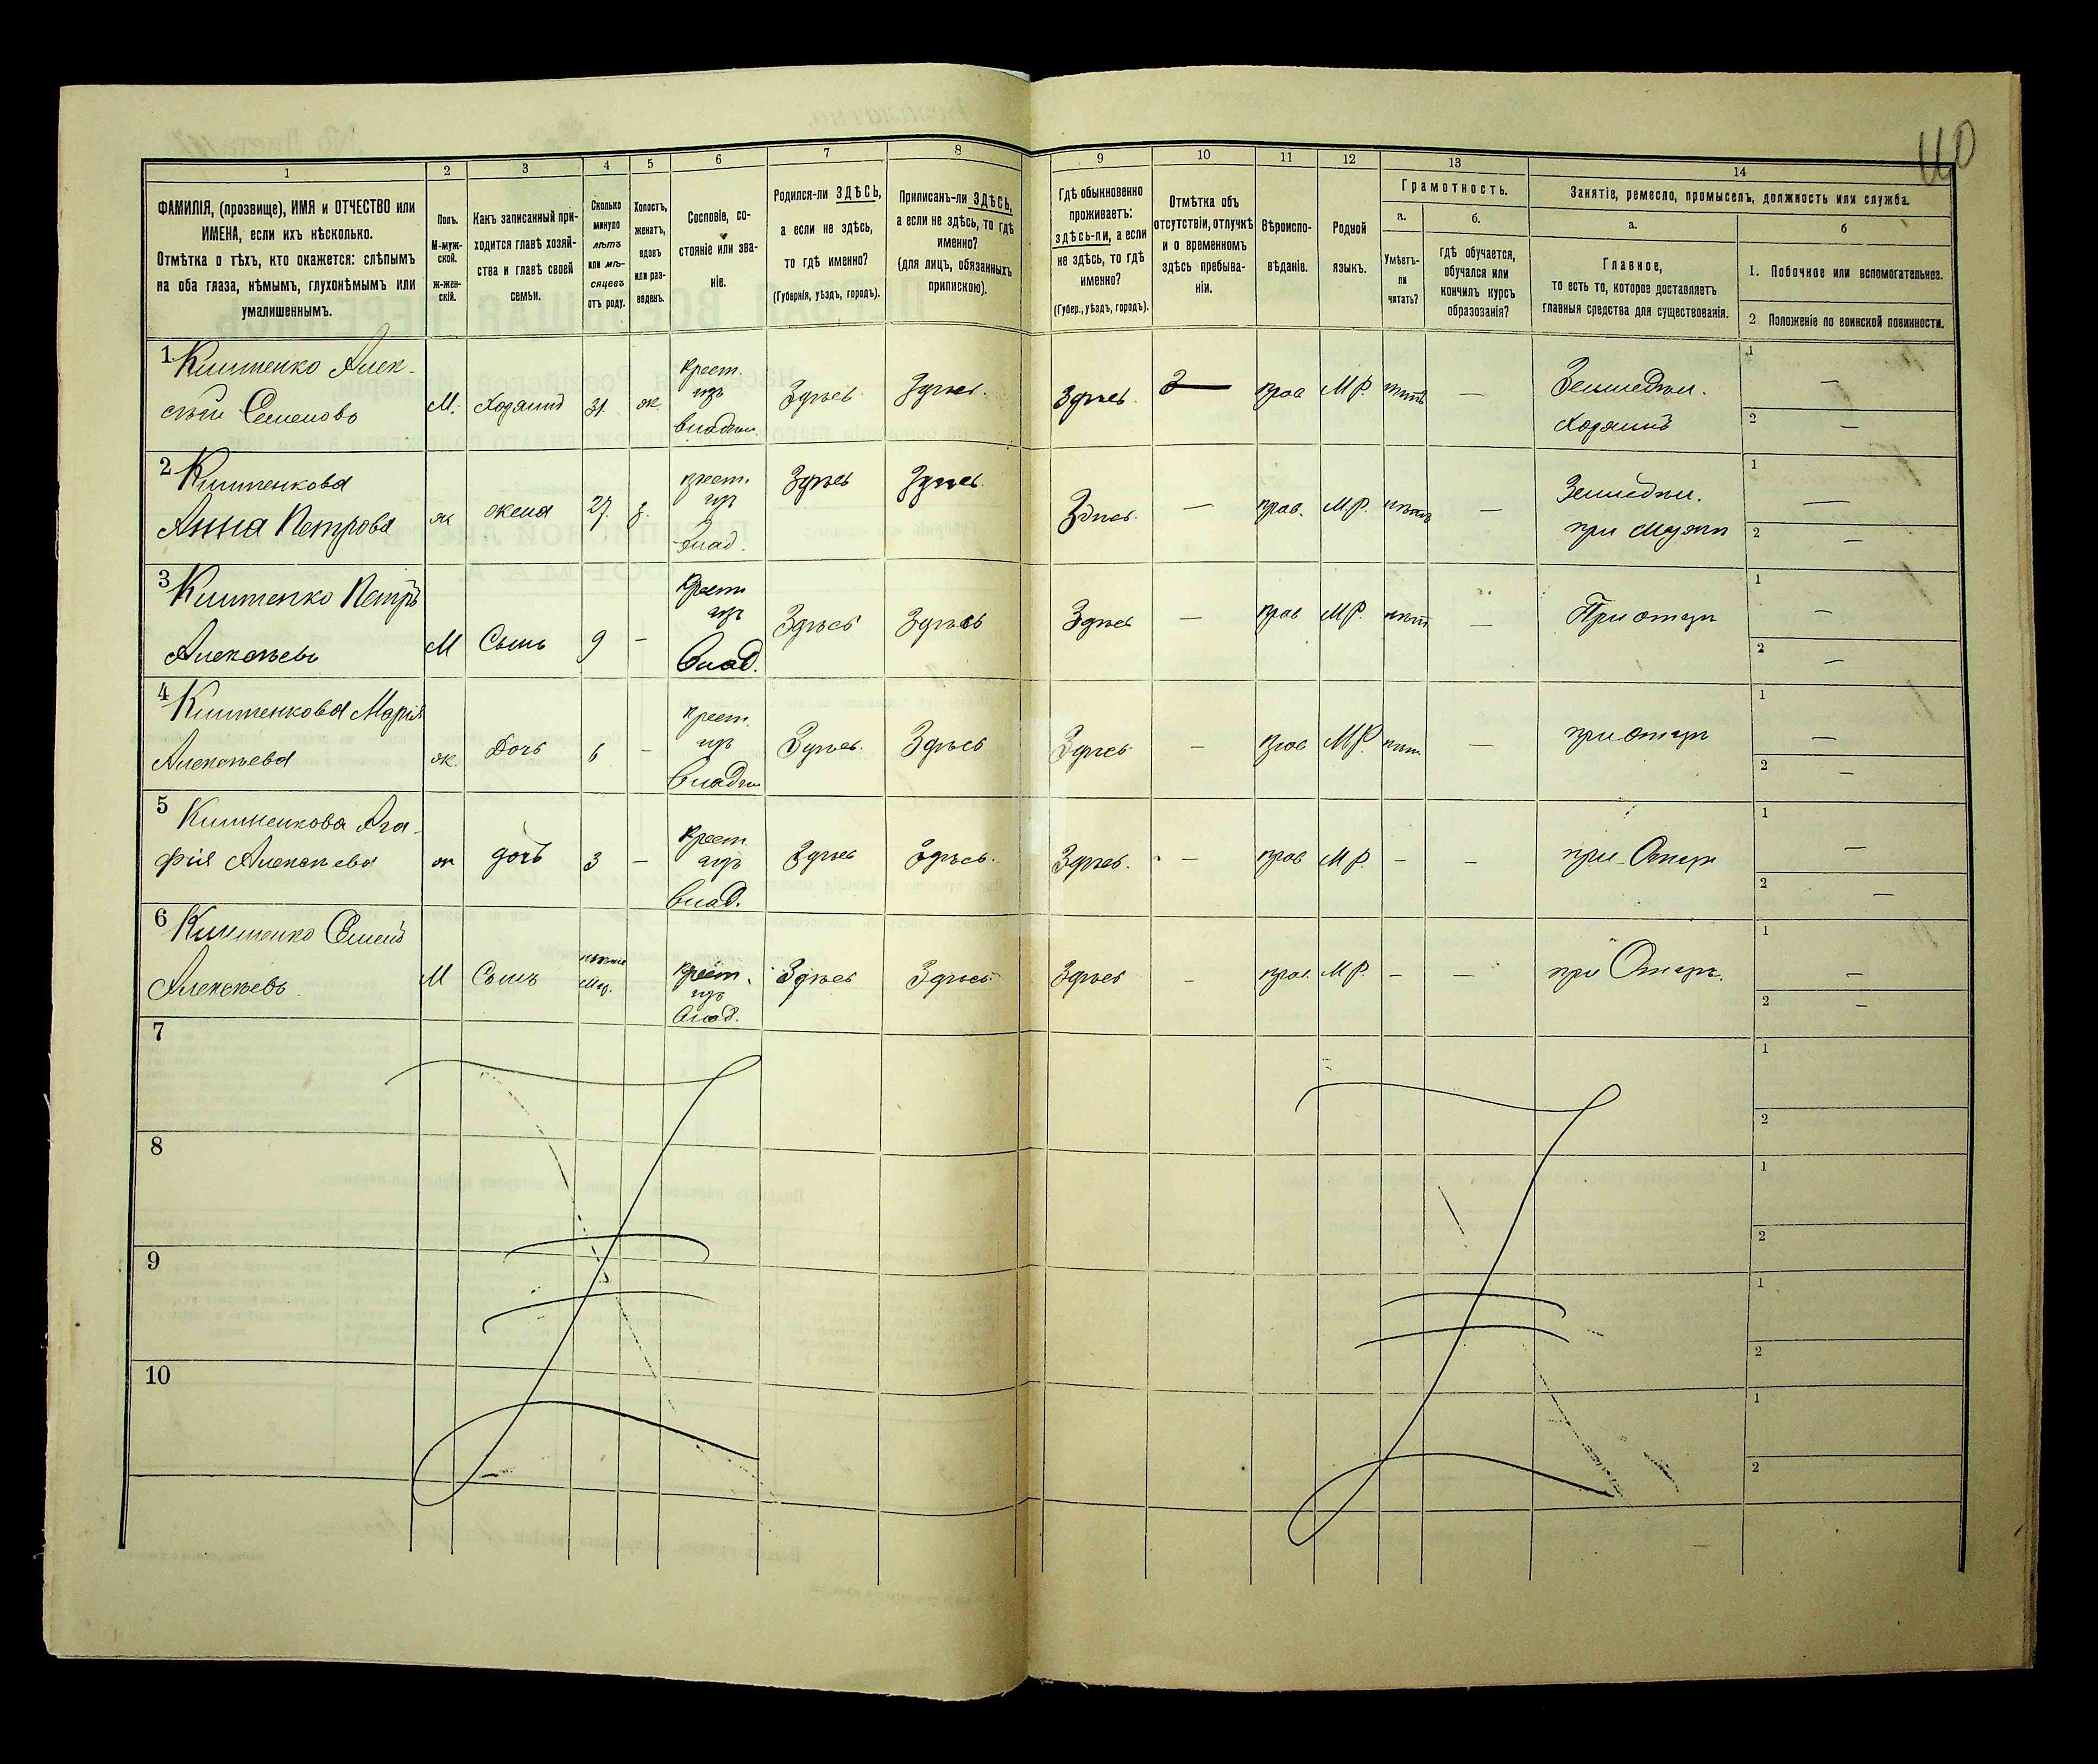 40
1 2 3 4 5 6 7 8 9 10 11 12 13 14
ФАМИЛІЯ, (прозвище), ИМЯ и ОТЧЕСТВО или
ИМЕНА, если ихъ нѣсколько.
Отмѣтка о тѣхъ, кто окажется: слѣпымъ
на оба глаза, нѣмымъ, глухонѣмымъ или
умалишеннымъ.
Полъ.
М-муж-
ской.
Ж-жен-
скій.
Какъ записанный при-
ходится главѣ хозяй-
ства и главѣ своей
семьи.
Сколько
минуло
лѣтъ
или мѣ-
сяцевъ
отъ роду.
Холостъ,
женатъ,
вдовъ
или раз-
веденъ.
Сословіе, со-
стояніе или зва-
ніе.
Родился-ли ЗДѢСЬ,
а если не здѣсь,
то гдѣ именно?
(Губернія, уѣздъ, городъ).
Приписанъ-ли ЗДѢСЬ,
а если не здѣсь, то гдѣ
именно?
(для лицъ, обязанныхъ
припискою).
Гдѣ обыкновенно
проживаетъ:
здѣсь-ли, а если
не здѣсь, то гдѣ
именно?
(Губер., уѣздъ, городъ).
Отмѣтка объ
отсутствіи, отлучкѣ
и о временномъ
здѣсь пребыва-
ніи.
Вѣроиспо-
вѣданіе.
Родной
языкъ.
Грамотность.
а.
Умѣетъ-
ли
читать?
б.
Гдѣ обучается,
обучался или
кончилъ курсъ
образованія?
Занятіе, ремесло, промыселъ, должность или служба.
а.
Главное,
то есть то, которое доставляетъ
главныя средства для существованія.
б
1. Побочное или вспомогательное.
2 Положеніе по воинской повинности.
1 Алек-
сѣй Семеновъ
М. Хозяинъ 31. ж. крест. изъ владѣл. Здѣсь Здѣсь. Здѣсь. — прав МР. нѣтъ — Земледѣл. Хозяинъ 1 — 2 —
2
Анна Петрова
ж жена 27 з. крест. изъ влад. Здѣсь Здѣсь. Здѣсь. — прав. МР. нѣтъ — Земледѣл. при мужѣ 1 — 2 —
3 Петръ
Алексѣевъ
М Сынъ 9 — крест изъ влад. Здѣсь Здѣсь Здѣсь — прав МР. нѣтъ — При отцѣ 1 — 2 —
4 Марія
Алексѣева
ж. Дочь 6 — крест. изъ владѣл Здѣсь. Здѣсь Здѣсь — прав МР. нѣт. — при отцѣ 1 — 2 —
5 Ага-
фія Алексѣева
ж дочь 3 — крест изъ влад. Здѣсь Здѣсь. Здѣсь. — прав МР. — — при Отцѣ 1 — 2 —
6 Семенъ
Алексѣевъ
М Сынъ крест. изъ влад. Здѣсь Здѣсь Здѣсь — прав. МР. — — при Отцѣ. 1 — 2 —
7 1 2
8 1 2
9 1 2
10 1 2